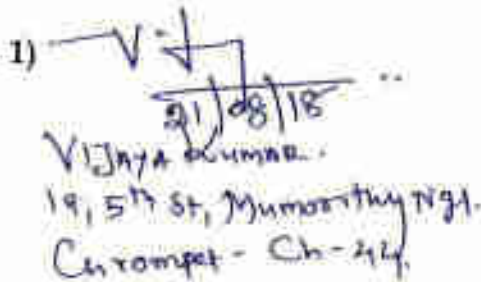 1)
21/08/18
VIJAYA KUMAR.
19, 5th St, Mumoorthy Ngr.
Chrompet - Ch-44.